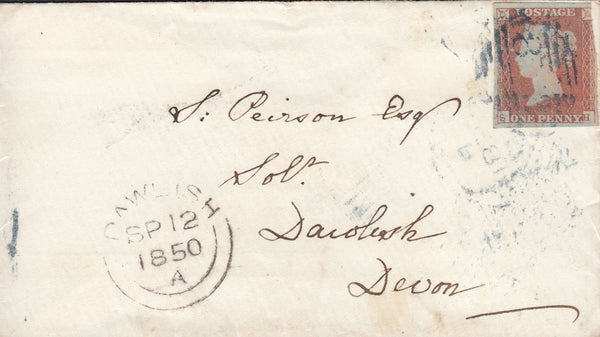 POSTAGE
S H
ONE PENNY
S: Peirson Esqr
Solr.
Dawlish
Devon
DAWLISH
SP 12
1850
A